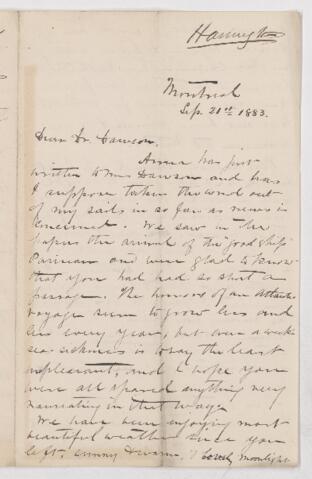 Harrington
Montreal
Sep. 21st 1883.
Dear Dr. Dawson.
Anna has just
written to Mrs Dawson and has
I suppose taken the wind out
of my sails in so far as news is
concerned. We saw in the
papers the arrival of the "good ship"
Parisian and were glad to know
that you had had so short a
passage. The horrors of an Atlantic
voyage seem to grow less and
less every year, but even a week's
sea-sickness is to say the least
unpleasant, and I hope you
were all spared anything very
nauseating in that way.
We have been enjoying most
beautiful weather since you
left, sunny days & lovely moonlight